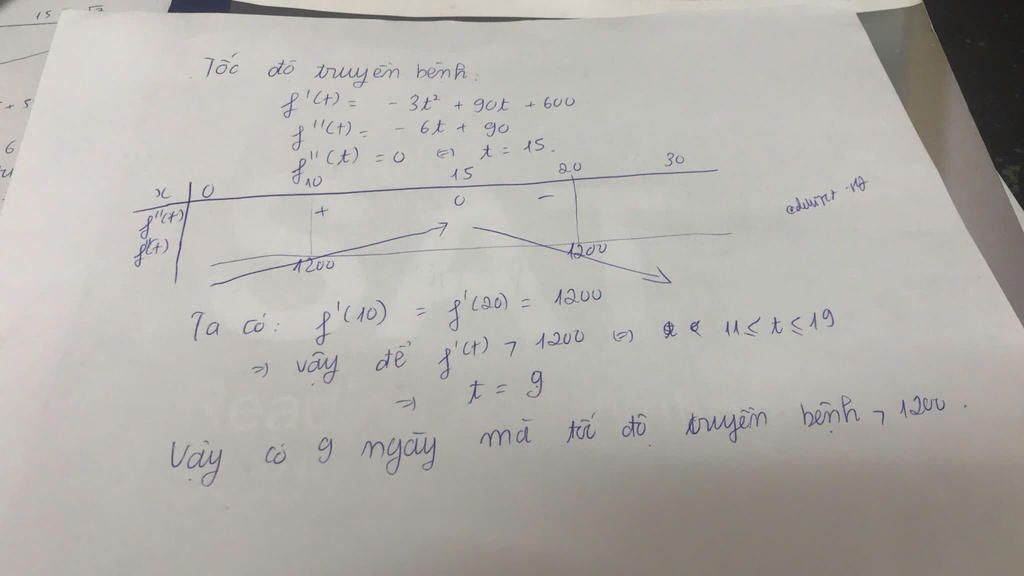 Tốc độ truyền bệnh:
f'(t) = - 3t² + 90t + 600
f''(t) = - 6t + 90
f''(t) = 0 ⇔ t = 15.
x 0 10 15 20 30
f''(t) + 0 -
f'(t) 1200 1200
Ta có: f'(10) = f'(20) = 1200
⇒ vậy để f'(t) > 1200 ⇔ 11 ≤ t ≤ 19
⇒ t = 9
Vậy có 9 ngày mà tốc độ truyền bệnh > 1200.